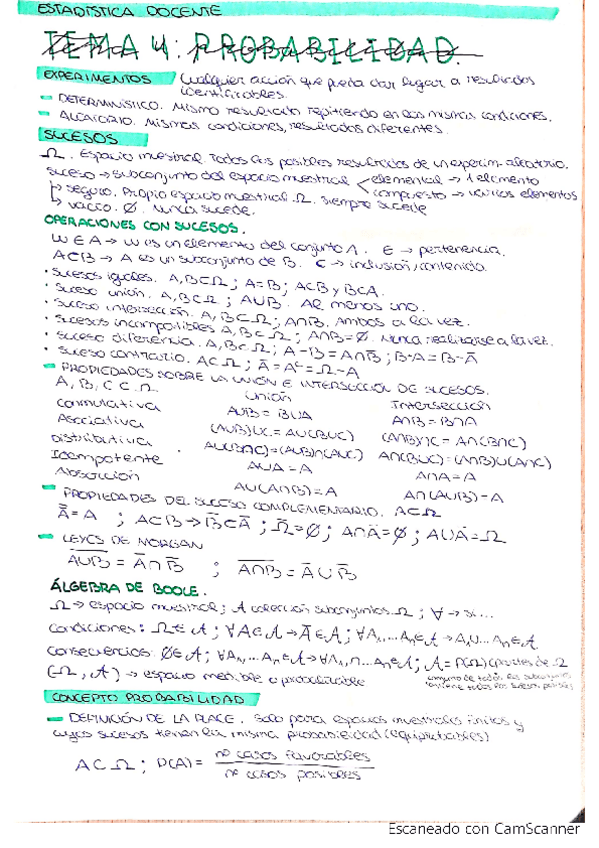 ESTADÍSTICA DOCENTE
TEMA 4: PROBABILIDAD.
EXPERIMENTOS Cualquier acción que pueda dar lugar a resultados
identificables.
- DETERMINÍSTICO. Mismo resultado repitiendo en las mismas condiciones.
- ALEATORIO. Mismas condiciones, resultados diferentes.
SUCESOS
Ω. Espacio muestral. Todos los posibles resultados de un experim. aleatorio.
Suceso → subconjunto del espacio muestral < elemental → 1 elemento
compuesto → varios elementos
↳ seguro. Propio espacio muestral. Ω. Siempre sucede
↳ vacío. Ø. Nunca sucede.
OPERACIONES CON SUCESOS.
W ∈ A → W es un elemento del conjunto A. ∈ → pertenencia.
A⊂B → A es un subconjunto de B. ⊂ → inclusión, contenido.
· Sucesos iguales. A, B⊂Ω ; A=B ; A⊂B y B⊂A.
· Suceso unión. A, B⊂Ω ; A∪B. Al menos uno.
· Suceso intersección. A, B⊂Ω ; A∩B. Ambos a la vez.
· Sucesos incompatibles A, B⊂Ω ; A∩B=Ø. Nunca realizarse a la vez.
· Suceso diferencia. A, B⊂Ω ; A-B = A∩B̄ ; B-A = B-Ā
· Suceso contrario. A⊂Ω ; Ā = Aᶜ = Ω-A
- PROPIEDADES SOBRE LA UNIÓN E INTERSECCIÓN DE SUCESOS.
A, B, C ⊂ Ω Unión Intersección
Conmutativa A∪B = B∪A A∩B = B∩A
Asociativa (A∪B)∪C = A∪(B∪C) (A∩B)∩C = A∩(B∩C)
Distributiva A∪(B∩C)=(A∪B)∩(A∪C) A∩(B∪C) = (A∩B)∪(A∩C)
Idempotente A∪A = A A∩A = A
Absorción A∪(A∩B) = A A∩(A∪B) = A
- PROPIEDADES DEL SUCESO COMPLEMENTARIO. A⊂Ω
Ā = A ; A⊂B → B̄⊂Ā ; Ω̄ = Ø ; A∩Ā = Ø ; A∪Ā = Ω
- LEYES DE MORGAN
A∪B = Ā∩B̄ ; A∩B = Ā∪B̄
ÁLGEBRA DE BOOLE.
Ω → espacio muestral ; A colección subconjuntos Ω ; ∀ → si...
Condiciones: Ω∈A ; ∀A∈A → Ā∈A ; ∀A₁,... Aₙ∈A → A₁∪... Aₙ∈A
Consecuencias: Ø∈A ; ∀A₁,... Aₙ∈A → ∀A₁,∩... Aₙ∈A ; A = P(Ω) (partes de Ω
(Ω, A) → espacio medible o probabilizable
CONCEPTO PROBABILIDAD
- DEFINICIÓN DE LA PLACE. Solo para espacios muestrales finitos y
cuyos sucesos tienen la misma probabilidad (equiprobables)
A⊂Ω ; P(A) = nº casos favorables
nº casos posibles
Escaneado con CamScanner